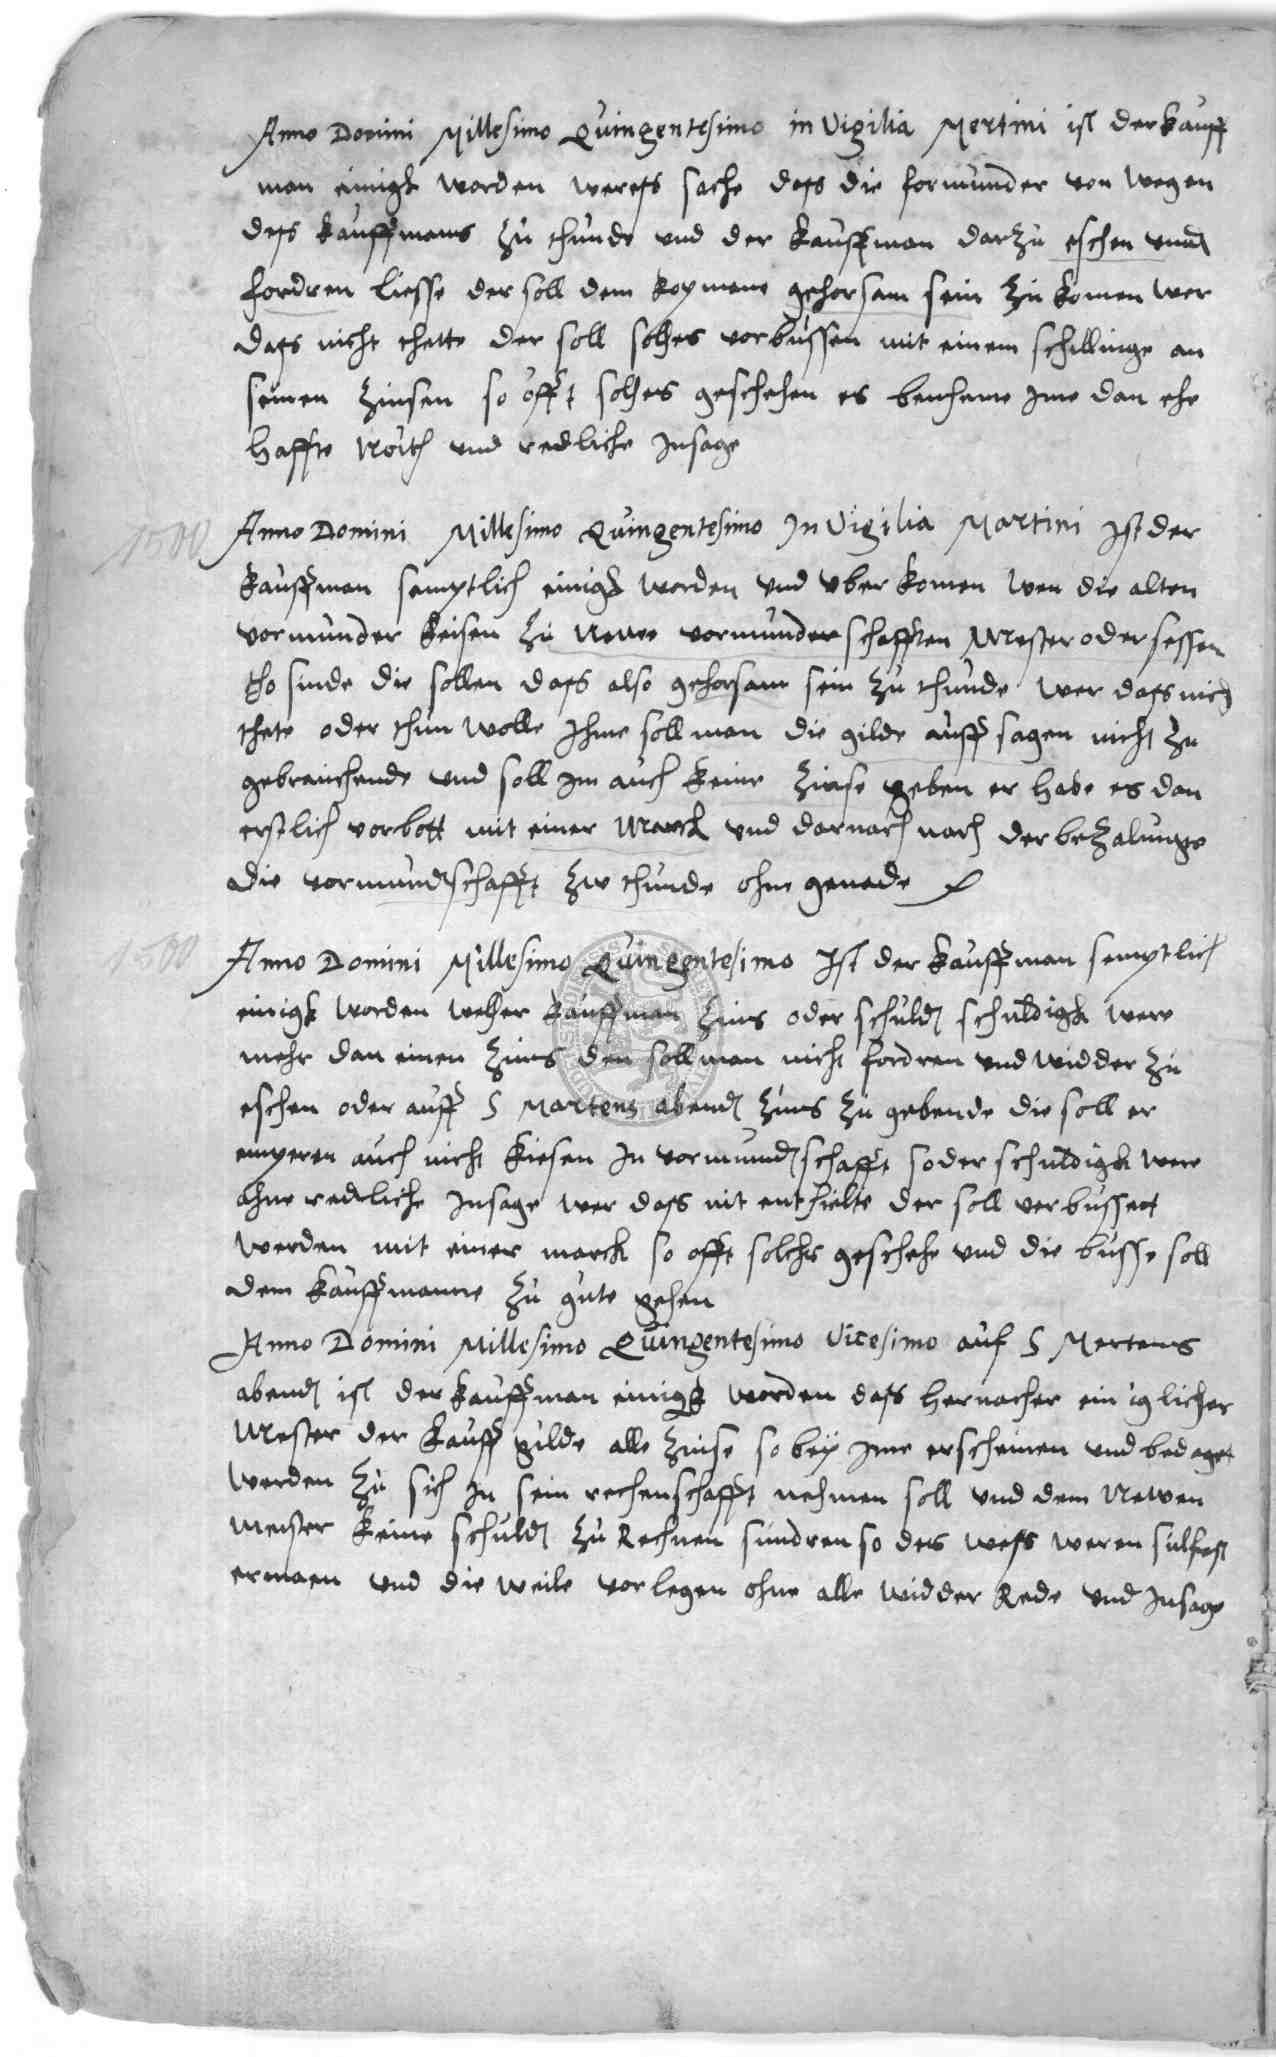 Anno Domini Millesimo Quingentesimo in Vigilia Mertini ist der kauff
man einigk worden werefs sache dafs die formunder von wegen
defs kauffmans zu thunde und der kauffman darzu eschen unnd
fordren liesse der soll dem kopmane gehorsam sein zu komen wer
dafs nicht thette der soll solches vorbussen mit einem schillinge an
seinen zinsen so offt solches geschehen es beneheme ime dan ehe
haffte noith und redliche insage
1500 Anno Domini Millesimo Quingentesimo In Vigilia Martini Ist der
kauffman semptlich einigk worden und uber komen wen die alten
vormunder keisen zu newe vormunderschafften Mester oder sessen
tho sinde die sollen dafs also gehorsam sein zu thunde wer dafs nich
thete oder thun wolle Ihme soll man die gilde auff sagen nicht zu
gebrauchende und soll im auch keine zinse geben er habe es dan
erstlich vorbott mit einer Marck und darnach nach der bezalunge
die vormundschafft zw thunde ohne genade
1500 Anno Domini Millesimo Quingentesimo Ist der kauffman semptlich
einigk worden welcher kauffman zins oder schuld schuldigk were
mehr dan einen zins den soll man nicht fordren und widder zu
eschen oder auff S Martens abend zins zu gebende die soll er
emperen auch nicht kiesen in vormundschafft so der schuldigk were
ahne redliche insage wer dafs nit enthielte der soll verbussett
werden mit einer marck so offt solchs geschehe und die busse soll
dem kauffmanne zu gute gehen
Anno Domini Millesimo Quingentesimo Vicesimo auf S Mertens
abend ist der kauffman einigk worden dafs hernacher ein iglicher
Mester der kauff gilde alle zinse so bey ime erscheinen und bedaget
werden zu sich in sein rechenschafft nehmen soll und dem Newen
Meister keine schuld zu Rechnen sundren so des wefs weren sulfest
ermaen und die weile vorlegen ohne alle widder Rede und Insage